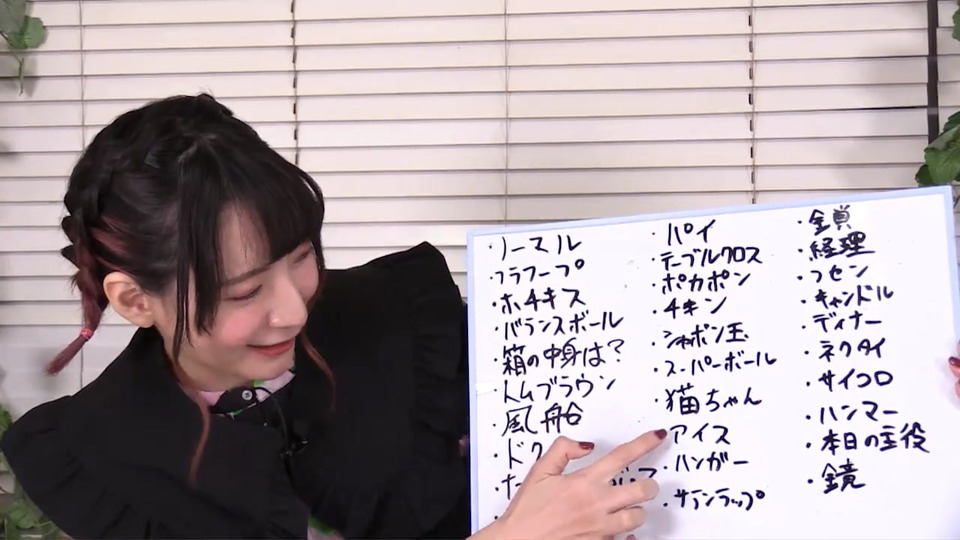 ・ノーマル
・フラフープ
・ホチキス
・バランスボール
・箱の中身は?
・トムブラウン
・風船
・ドク
・た
・パイ
・テーブルクロス
・ポカポン
・チキン
・シャボン玉
・スーパーボール
・猫ちゃん
・アイス
・ハンガー
・サランラップ
・鎖
・経理
・フセン
・キャンドル
・ディナー
・ネクタイ
・サイコロ
・ハンマー
・本日の主役
・鏡